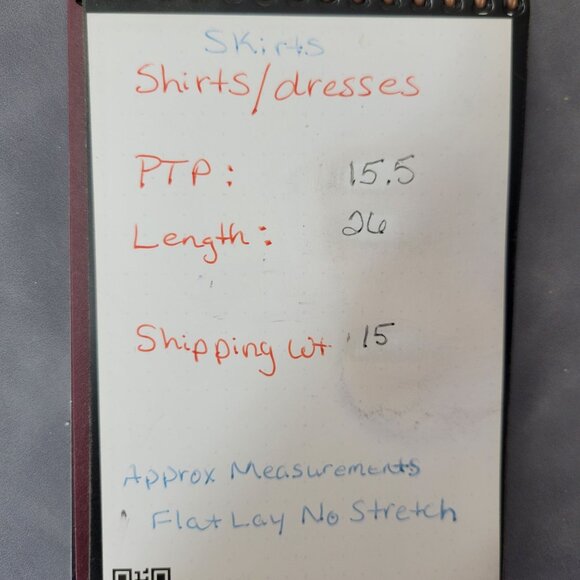 Skirts
Shirts/dresses
PTP: 15.5
Length: 26
Shipping Wt 15
Approx Measurements
Flat Lay No Stretch